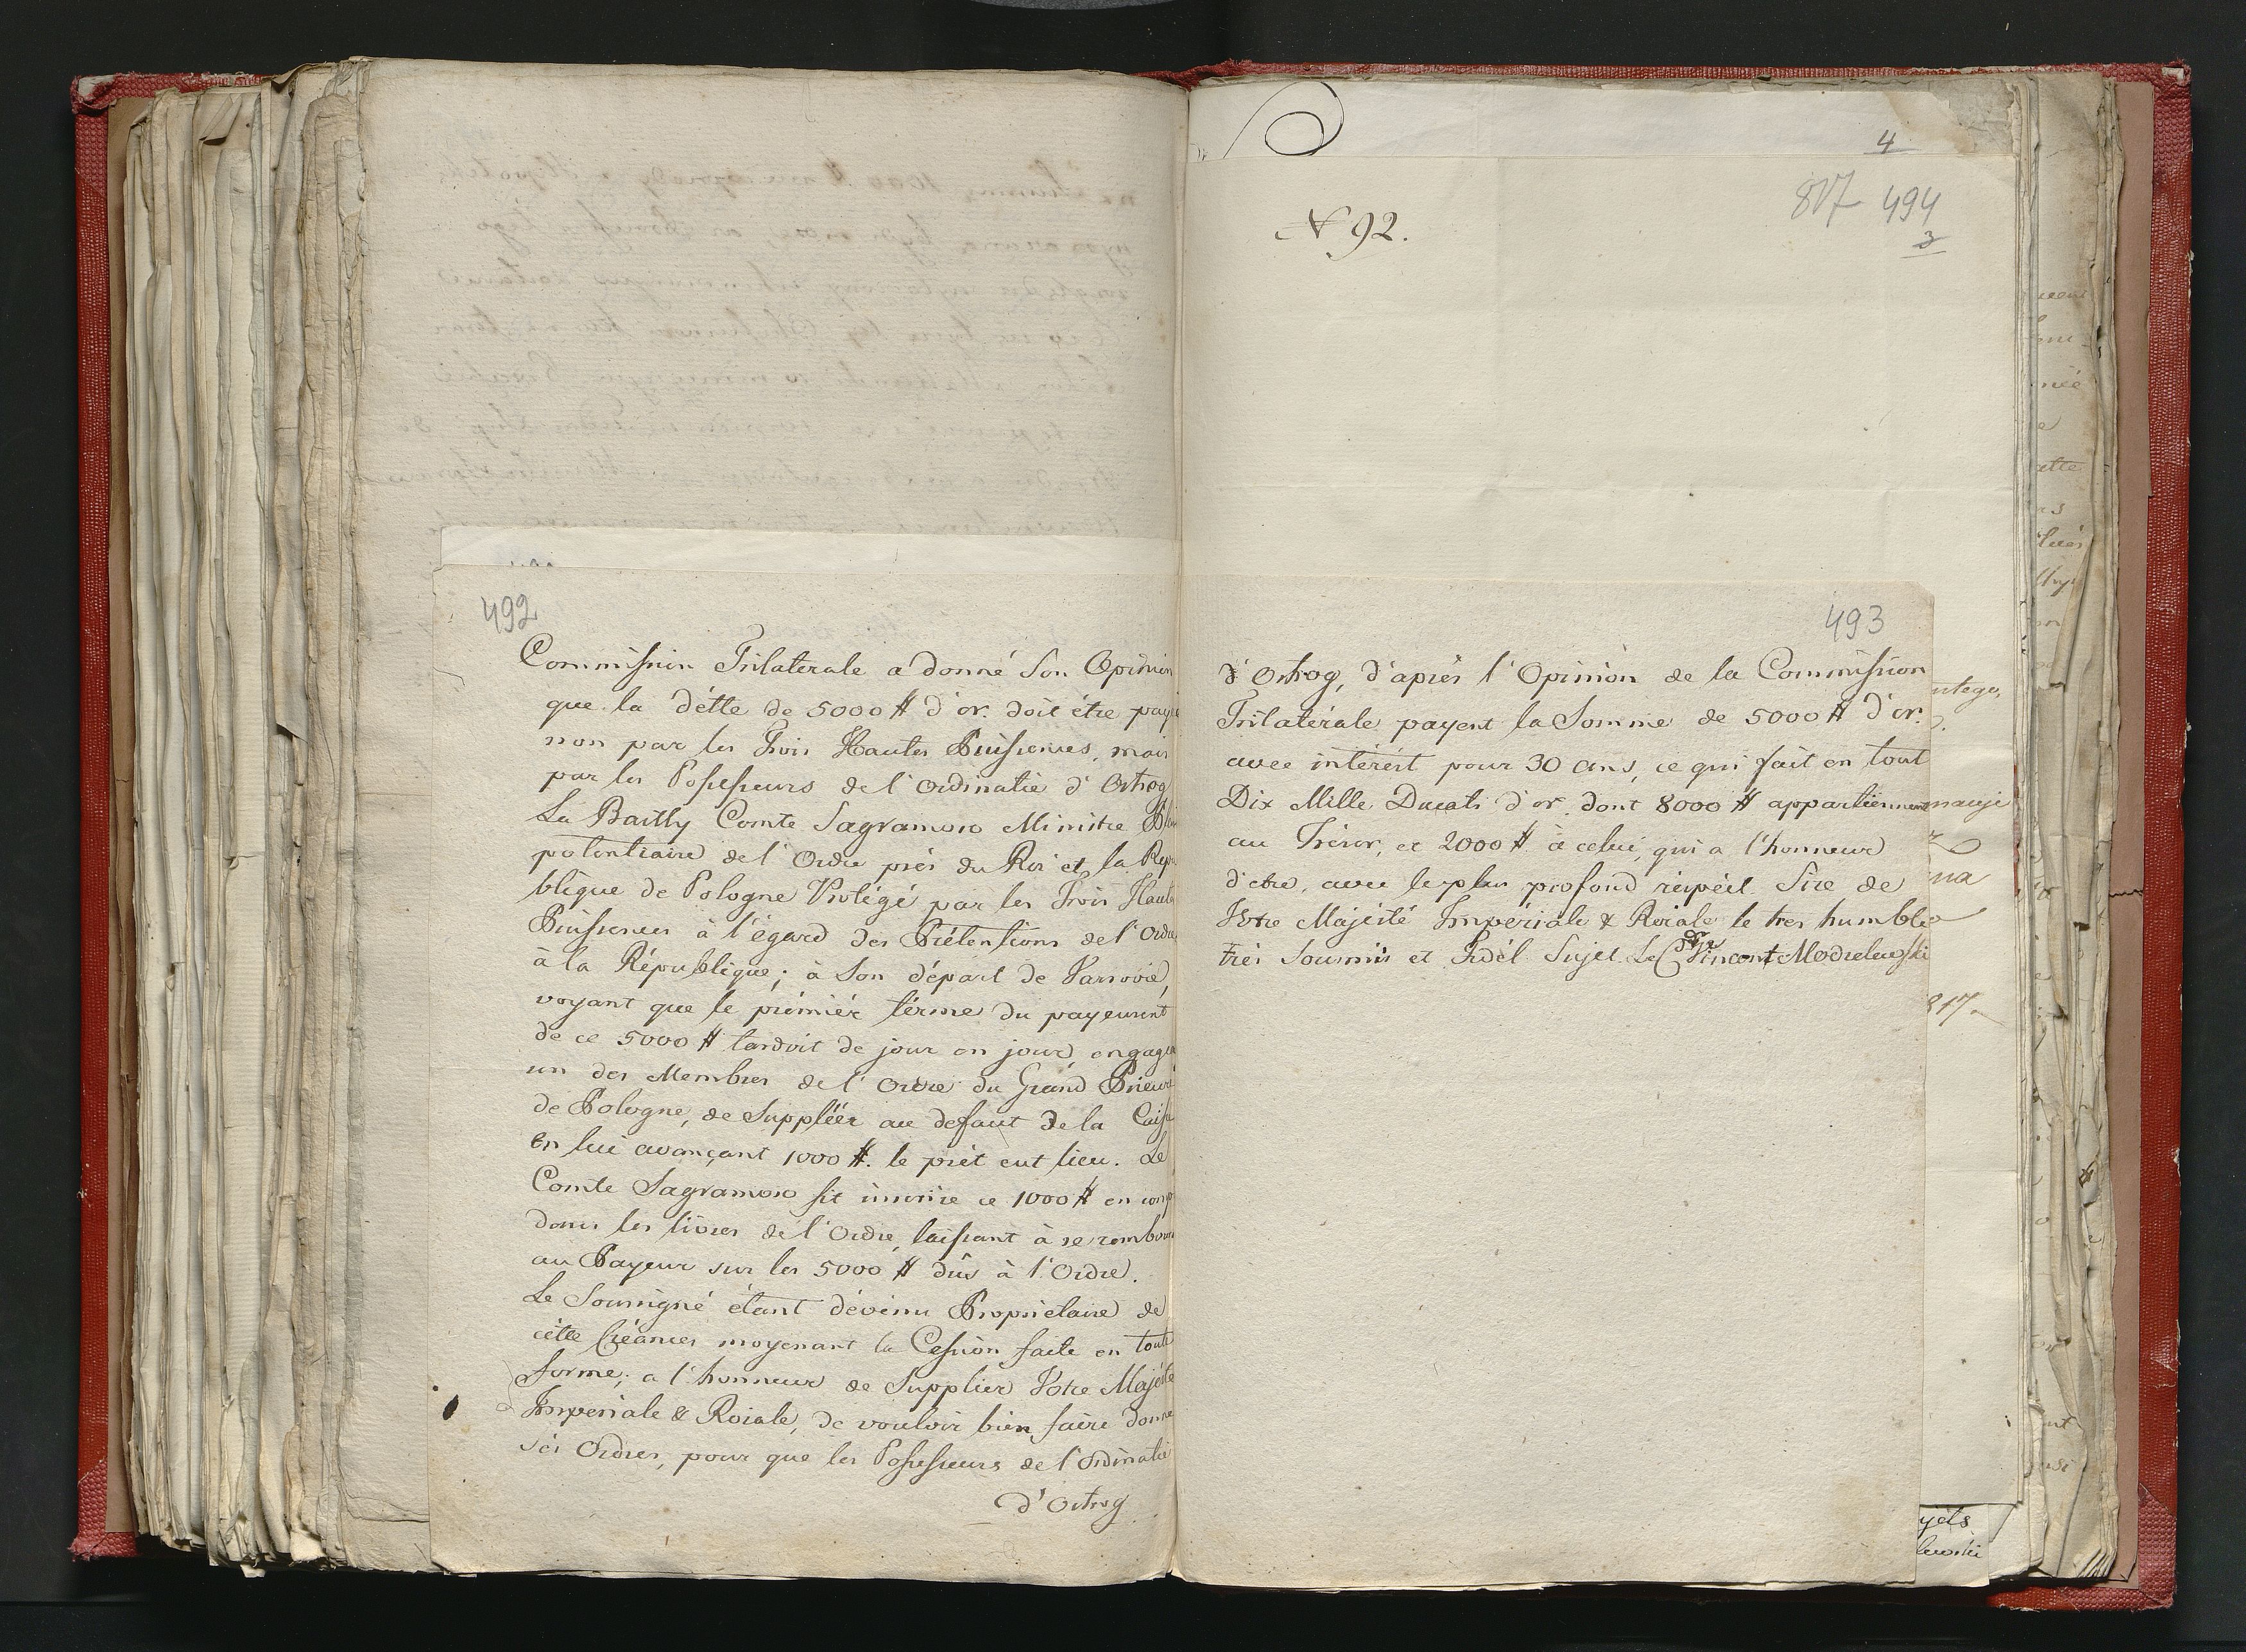 492
Commission Trilaterale a donné Son Opinion
que la détte de 5000 # d'or. doit étre payé
non par les Trois Hautes Puissences, mais
par les Possesseurs de l'Ordinatie d'Ostrog
Le Bailly Comte Sagramoso Ministre Pl
potentiaire de l'Ordre prés du Roi et la Repu
blique de Pologne Protégé par les Trois Haute
Puissences à l'égard des Prétentions de l'Ordre
à la République; à Son départ de Varsovie,
voyant que le prémiér térme du payement
de ce 5000 # tardoit de jour en jour, engagea
un des Membres de l'Ordre du Grand Prieuré
de Pologne, de Suppléer au defaut de la Caisse
en lui avançant 1000 #. le prét eut lieu. Le
Comte Sagramoso fit inscrire ce 1000 # en comp
dans les livres de l'Ordre, laissant à se rembour
au Payeur sur les 5000 # dûs à l'Ordre.
Le Soussigné étant dévénu Propriétaire de
cétte Créances moyenant la Cession faite en toute
forme; a l'honneur de Supplier Votre Majésté
Imperiale & Roiale, de vouloir bien faire donne
Sés Ordres, pour que les Possesseurs de l'Ordinatie
d'Ostrog
4
N 92.
817 494
3
493
d'Ostrog, d'aprés l'Opinion de la Commission
Trilatérale payent la Somme de 5000 # d'or.
avec intérést pour 30 ans, ce qui fait en tout
Dix Mille Ducats d'or. dont 8000 # appartiennent
au Trésor, et 2000 # à celui, qui a l'honneur
d'etre, avec le plus profond réspéct. Sire de
Votre Majésté Impériale & Roiale le tres humble
trés Soumis et Fidél Sujet Le C de Vincent Modzelewski
817.